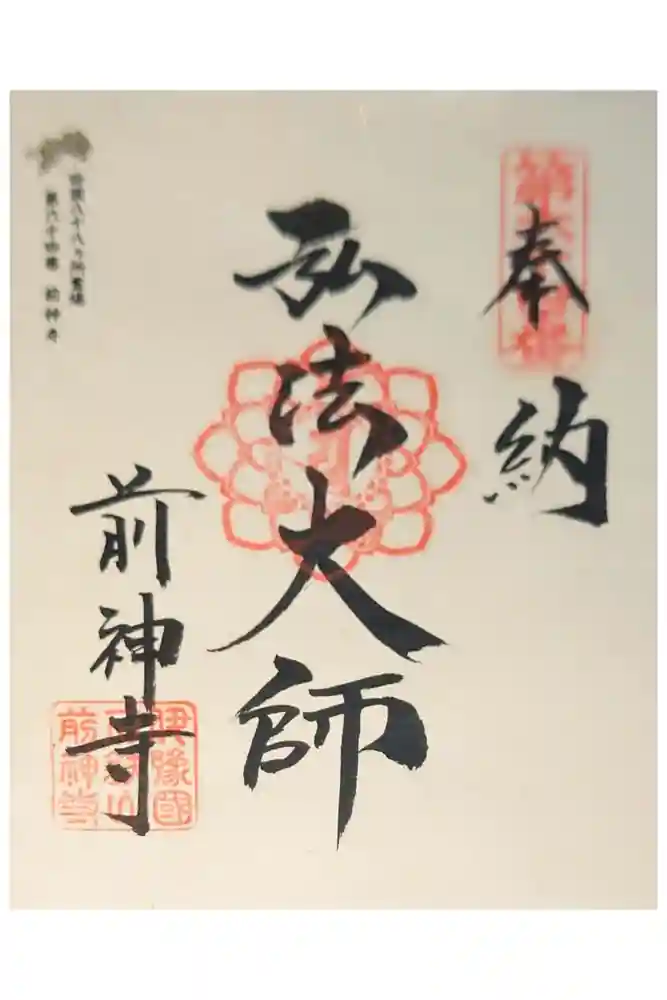 奉納
弘法大師
前神寺
四国八十八ヶ所霊場
第六十四番 前神寺
伊豫國
前神寺